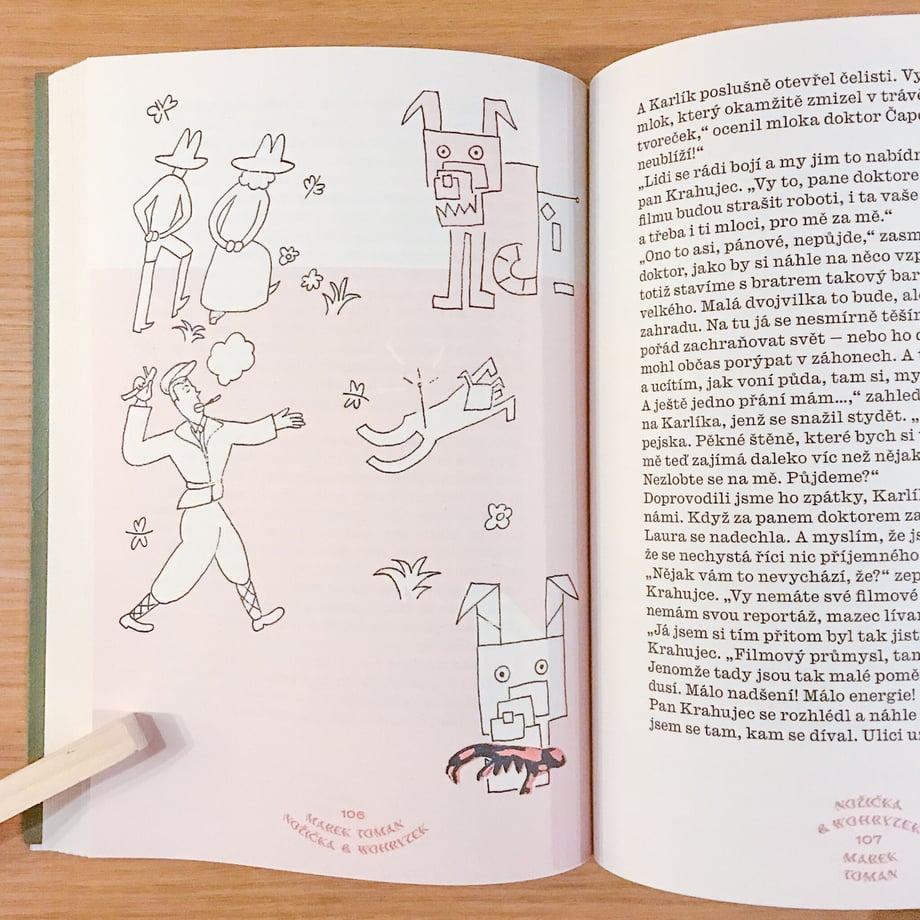 106
MAREK TOMAN
NOŽIČKA & WOHRYZEK
A Karlík poslušně otevřel čelisti. Vy
mlok, který okamžitě zmizel v trávě
tvoreček,“ ocenil mloka doktor Čap
neublíží!“
„Lidi se rádi bojí a my jim to nabídn
pan Krahujec. „Vy to, pane doktore
filmu budou strašit roboti, i ta vaše
a třeba i ti mloci, pro mě za mě.“
„Ono to asi, pánové, nepůjde,“ zasm
doktor, jako by si náhle na něco vzp
totiž stavíme s bratrem takový bar
velkého. Malá dvojvilka to bude, ale
zahradu. Na tu já se nesmírně těším
pořád zachraňovat svět – nebo ho
mohl občas porýpat v záhonech. A
a ucítím, jak voní půda, tam si, my
A ještě jedno přání mám...,“ zahled
na Karlíka, jenž se snažil stydět. „
pejska. Pěkné štěně, které bych si
mě teď zajímá daleko víc než nějak
Nezlobte se na mě. Půjdeme?“
Doprovodili jsme ho zpátky, Karlí
námi. Když za panem doktorem za
Laura se nadechla. A myslím, že js
že se nechystá říci nic příjemného
„Nějak vám to nevychází, že?“ zep
Krahujce. „Vy nemáte své filmové
nemám svou reportáž, mazec lívan
„Já jsem si tím přitom byl tak jist
Krahujec. „Filmový průmysl, tan
Jenomže tady jsou tak malé pomě
dusí. Málo nadšení! Málo energie!
Pan Krahujec se rozhlédl a náhle
jsem se tam, kam se díval. Ulicí u
NOŽIČKA
& WOHRYZEK
107
MAREK
TOMAN